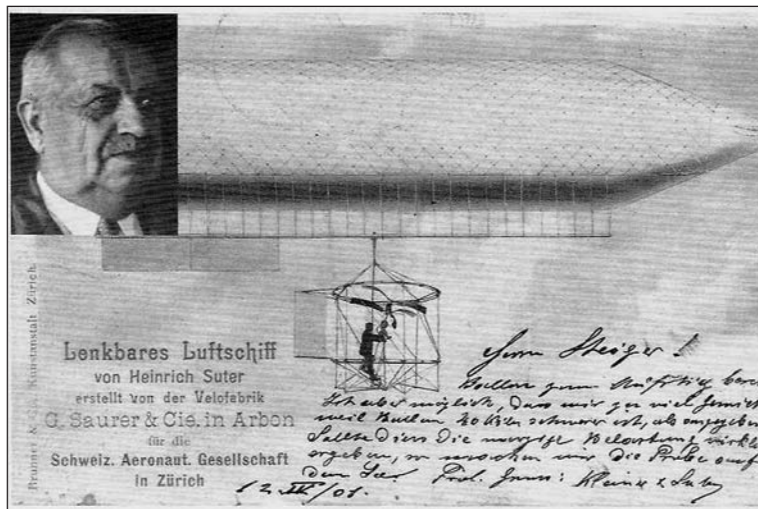 Brunner & C. Kunstanstalt Zürich.
Lenkbares Luftschiff
von Heinrich Suter
erstellt von der Velofabrik
G. Saurer & Cie. in Arbon
für die
Schweiz. Aeronaut. Gesellschaft
in Zürich
Herrn Steiger!
Ballon zum Aufstieg
Ist aber möglich, dass wir zu viel
weil Ballon 20 Kilo schwerer ist, als angegeben
Sollte dies die Belastung
ergeben, so machen wir die Probe auf
dem See